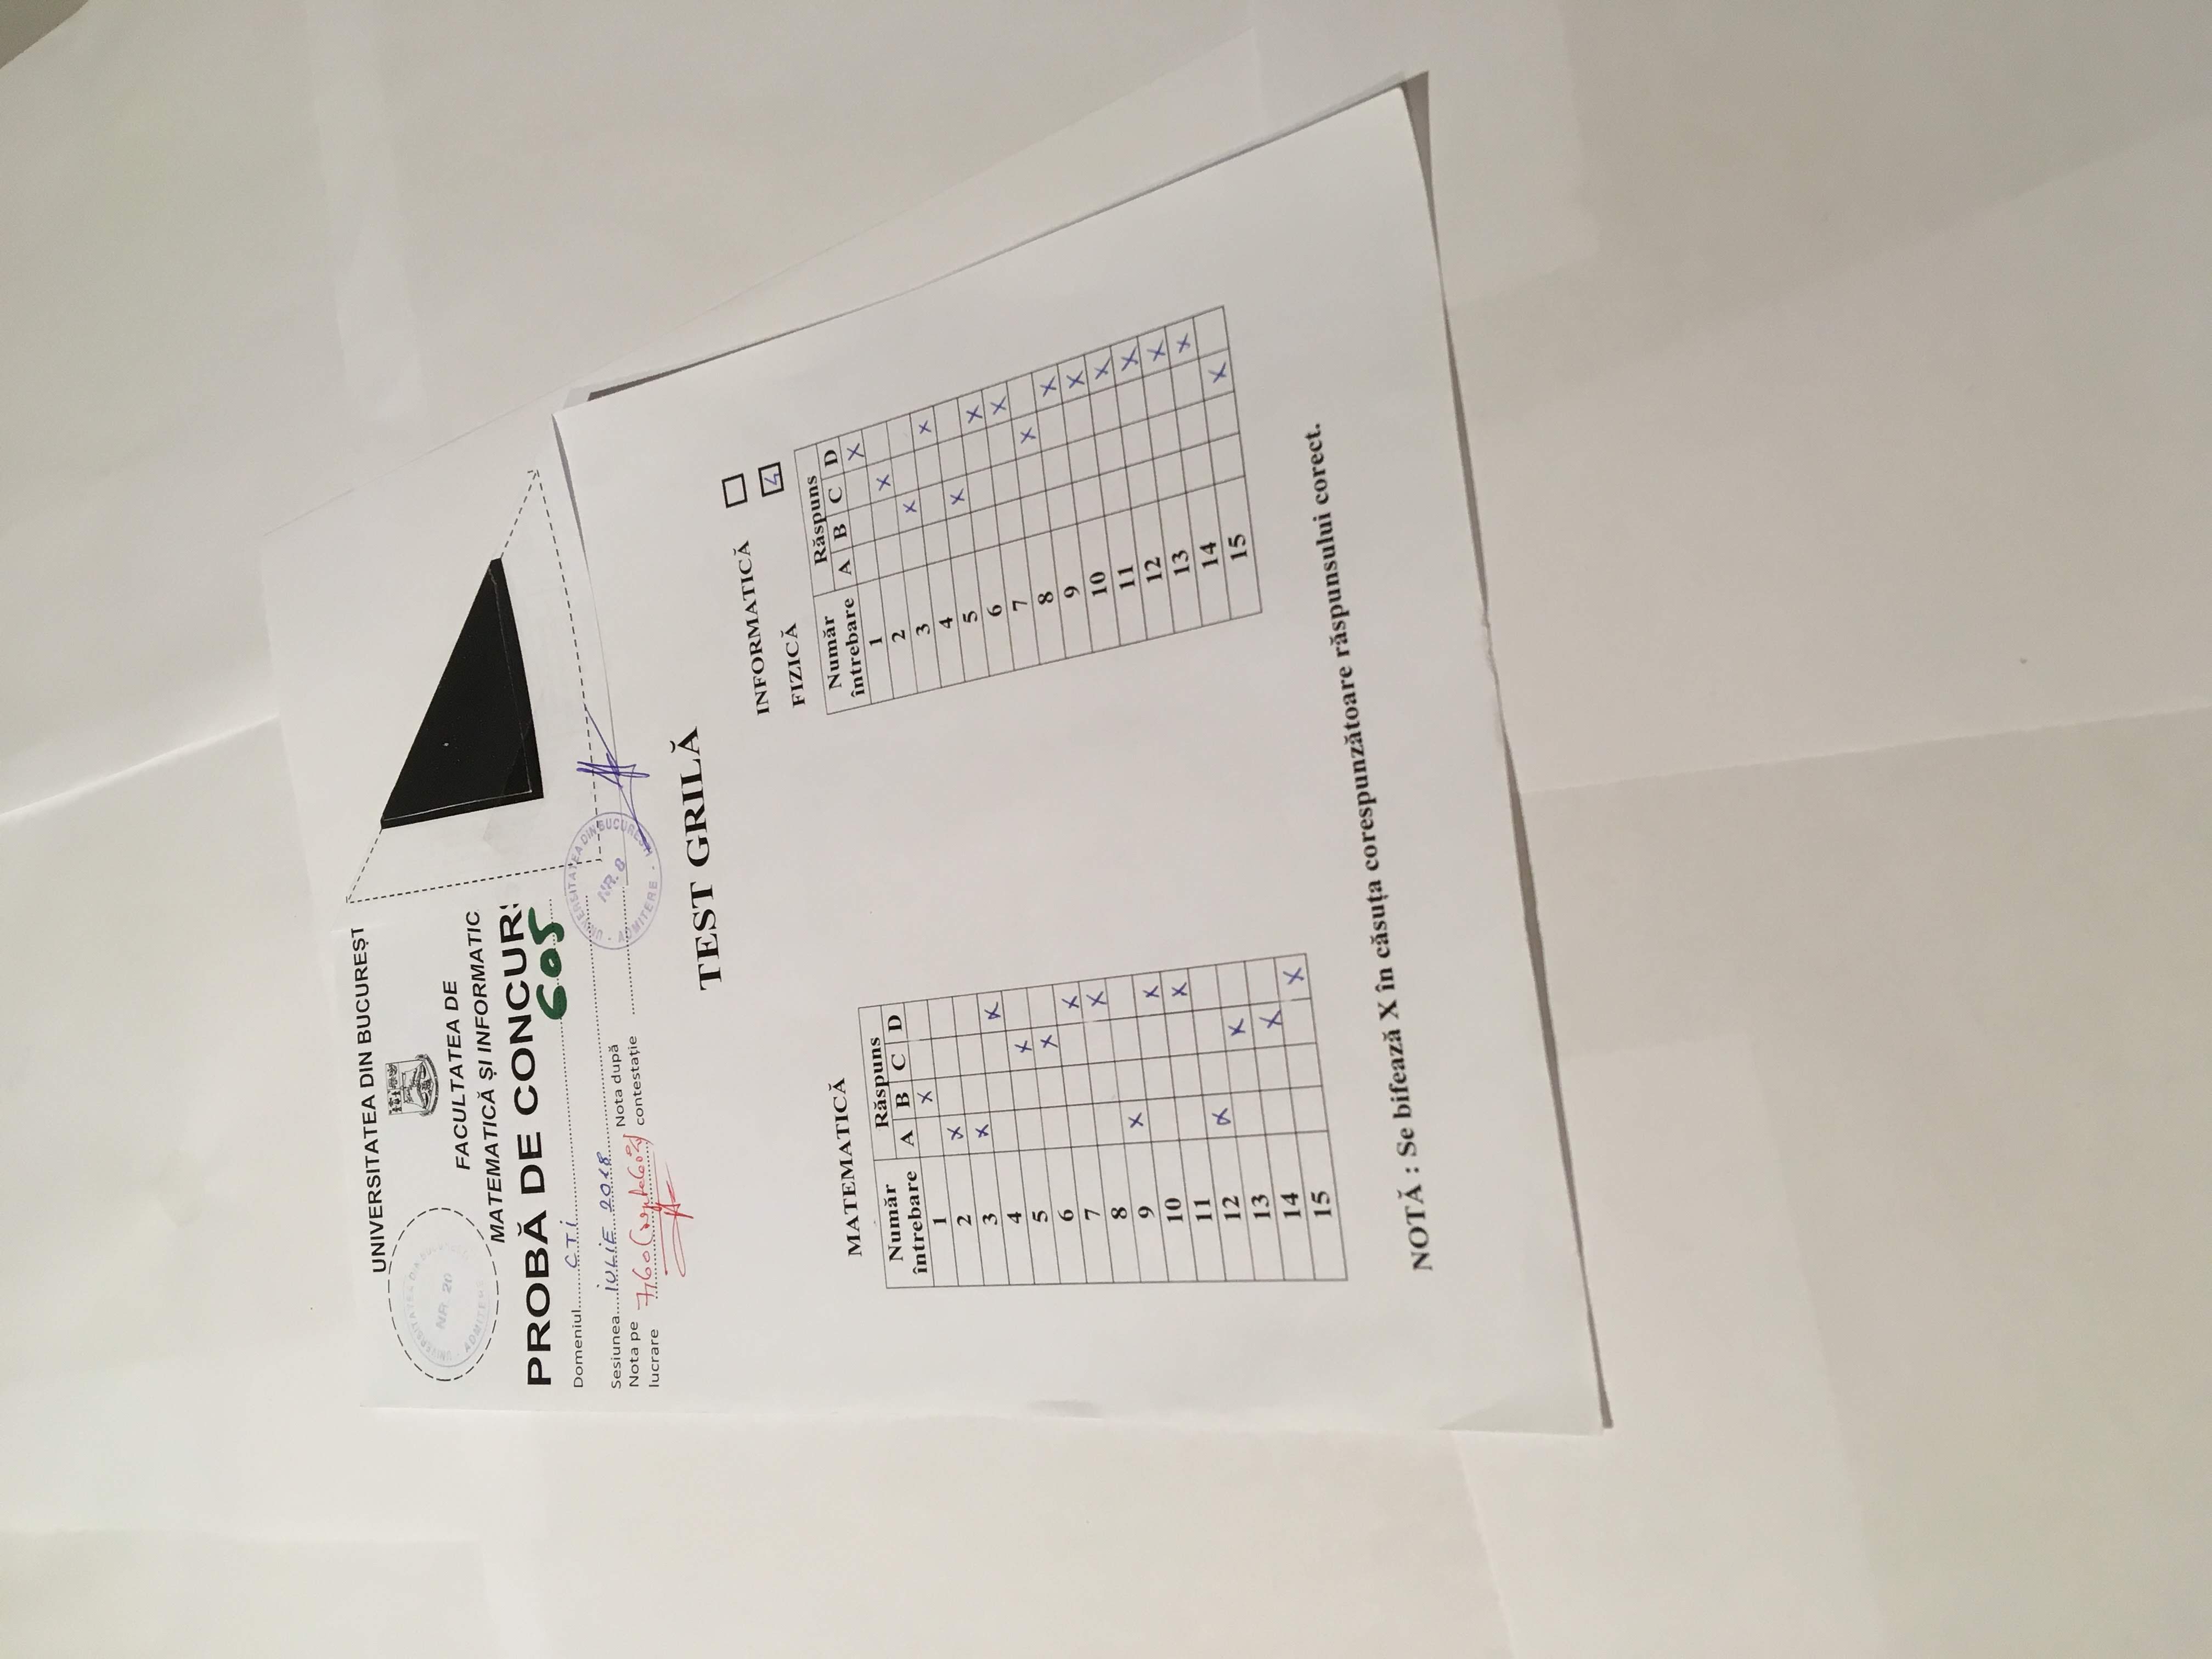 UNIVERSITATEA DIN BUCUREȘT
UNIVERSITATEA DIN
NR. 20
ADMITERE
FACULTATEA DE
MATEMATICĂ ȘI INFORMATIC
PROBĂ DE CONCURS
605
Domeniul........CTi
Sesiunea.....iULiE 2018
Nota pe lucrare 7,60 (șapte 60%)
Nota după contestație
UNIVERSITATEA DIN BUCUREȘTI
NR. 8
ADMITERE
TEST GRILĂ
INFORMATICĂ
FIZICĂ 4
MATEMATICĂ
Număr întrebare Răspuns
A B C D
1 X
2 X
3 X
4 X
5 X
6 X
7 X
8 X
9 X
10 X
11 X
12 X
13 X
14 X
15 X
Număr întrebare Răspuns
A B C D
1 X
2 X
3 X
4 X
5 X
6 X
7 X
8 X
9 X
10 X
11 X
12 X
13 X
14 X
15 X
NOTĂ : Se bifează X în căsuța corespunzătoare răspunsului corect.